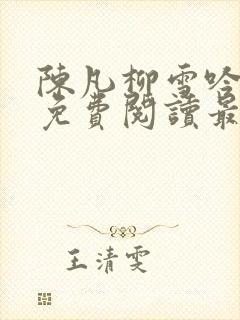 陳凡柳雪吟
免費閱讀最
王清雯